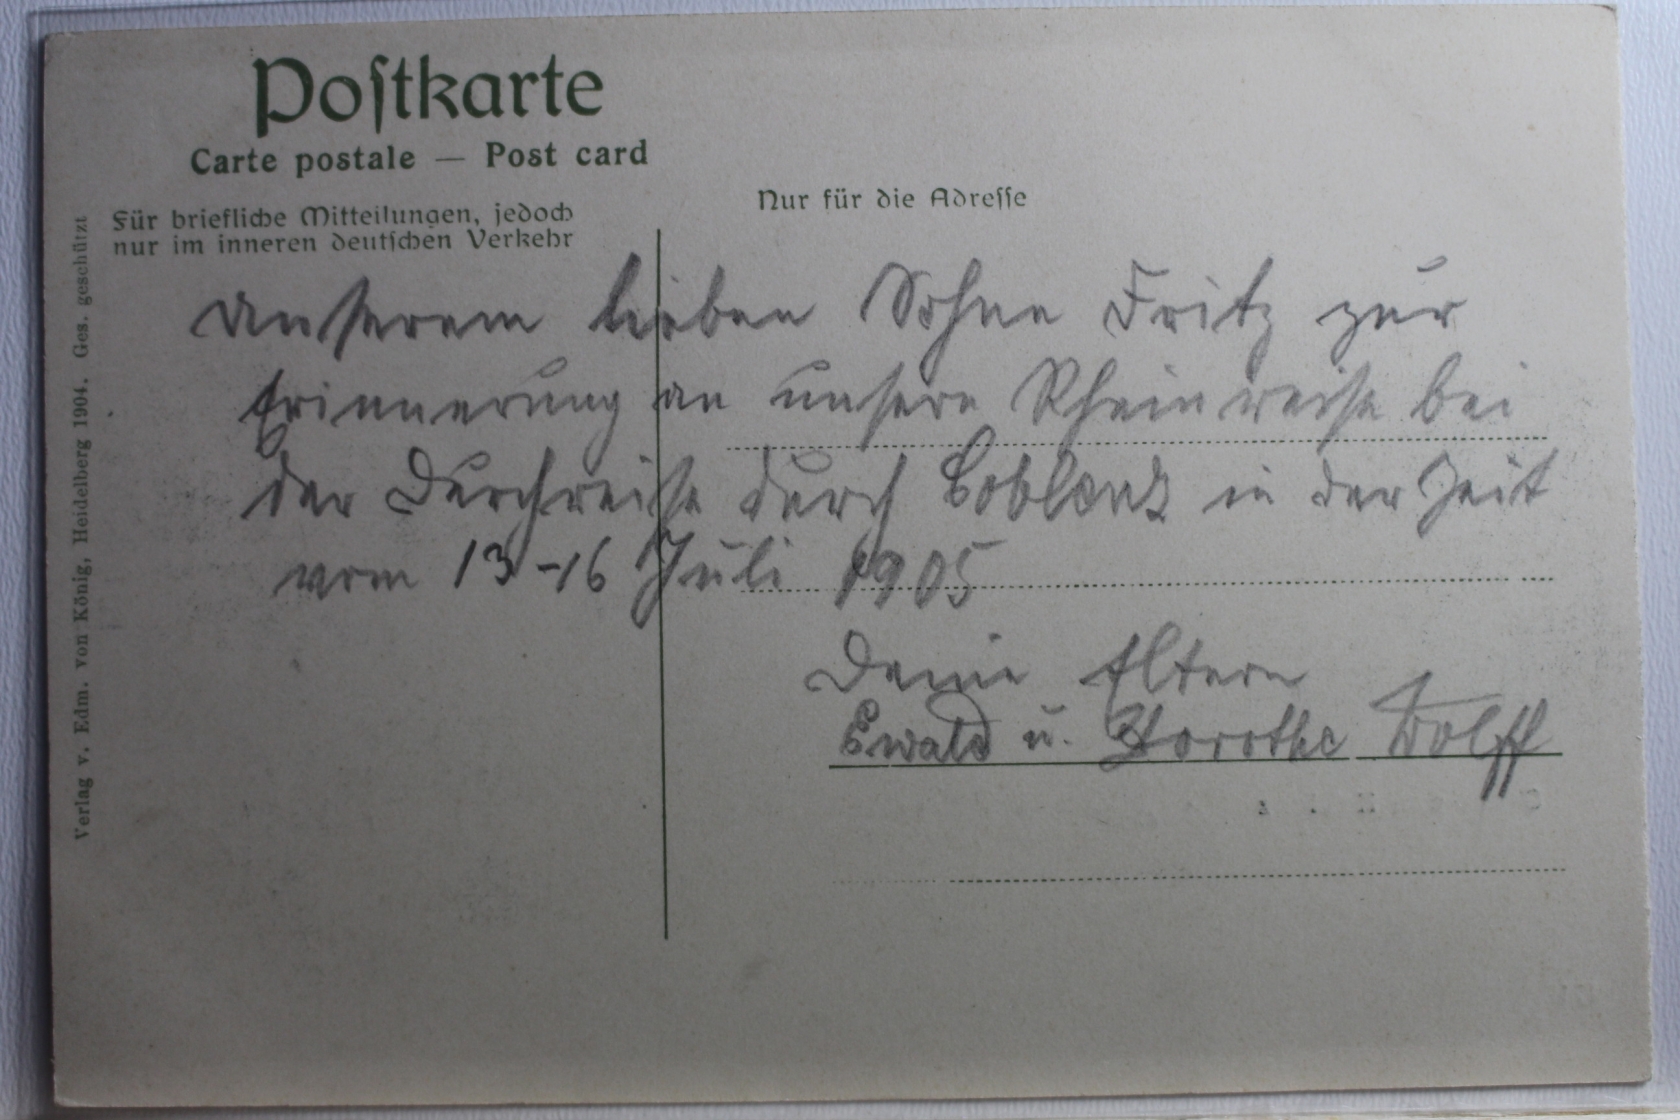 Postkarte
Carte postale — Post card
Für briefliche Mitteilungen, jedoch
nur im inneren deutschen Verkehr
Nur für die Adresse
Unserem lieben Sohne Fritz zur
Erinnerung an unsere Rheinreise bei
der Durchreise durch Coblenz in der Zeit
vom 13-16 Juli 1905
Deine Eltern
Ewald u. Dorothe Wolff
Verlag v. Edm. von König, Heidelberg 1904. Ges. geschützt